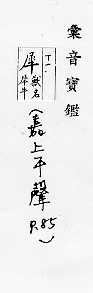 彙音寶鑑
犀 獸名 犀牛
(嘉上平聲
P.85)